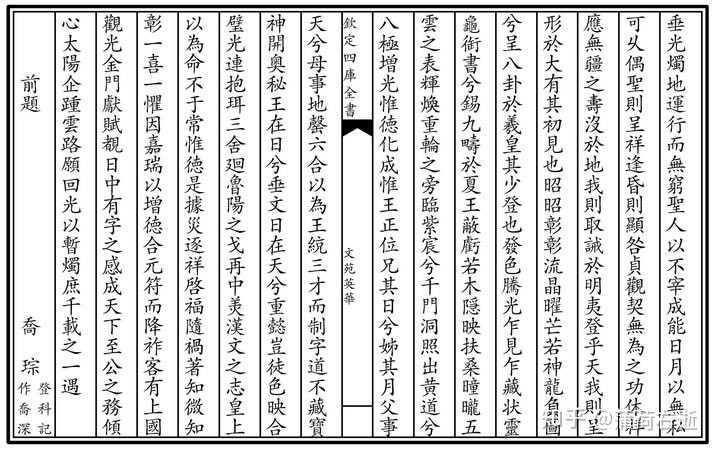 垂光燭地運行而無窮聖人以不宰成能日月以無私
可以偶聖則呈祥逢昏則顯咎貞觀契無為之功休祥
應無疆之壽沒於地我則取誡於明夷登乎天我則呈
形於大有其初見也昭昭彰彰流晶曜芒若神龍負圖
兮呈八卦於羲皇其少登也發色騰光乍見乍藏狀靈
龜銜書兮錫九疇於夏王蔽虧若木隠映扶桑曈曨五
雲之表輝煥重輪之旁臨紫宸兮千門洞照出黄道兮
八極增光惟德化成惟王正位兄其日兮姊其月父事
欽定四庫全書
文苑英華
天兮母事地罄六合以為王統三才而制字道不藏寶
神開奥秘王在日兮垂文日在天兮重懿豈徒色映合
璧光連抱珥三舍廻魯陽之戈再中美漢文之志皇上
以為命不于常惟德是據災逐祥啓福隨禍著知微知
彰一喜一懼因嘉瑞以增德合元符而降祚客有上國
觀光金門獻賦覩日中有字之感成天下至公之務傾
心太陽企踵雲路願回光以暫燭庶千載之一遇
前題
喬琮
登科記
作喬深
知乎 @蒲荷右逝